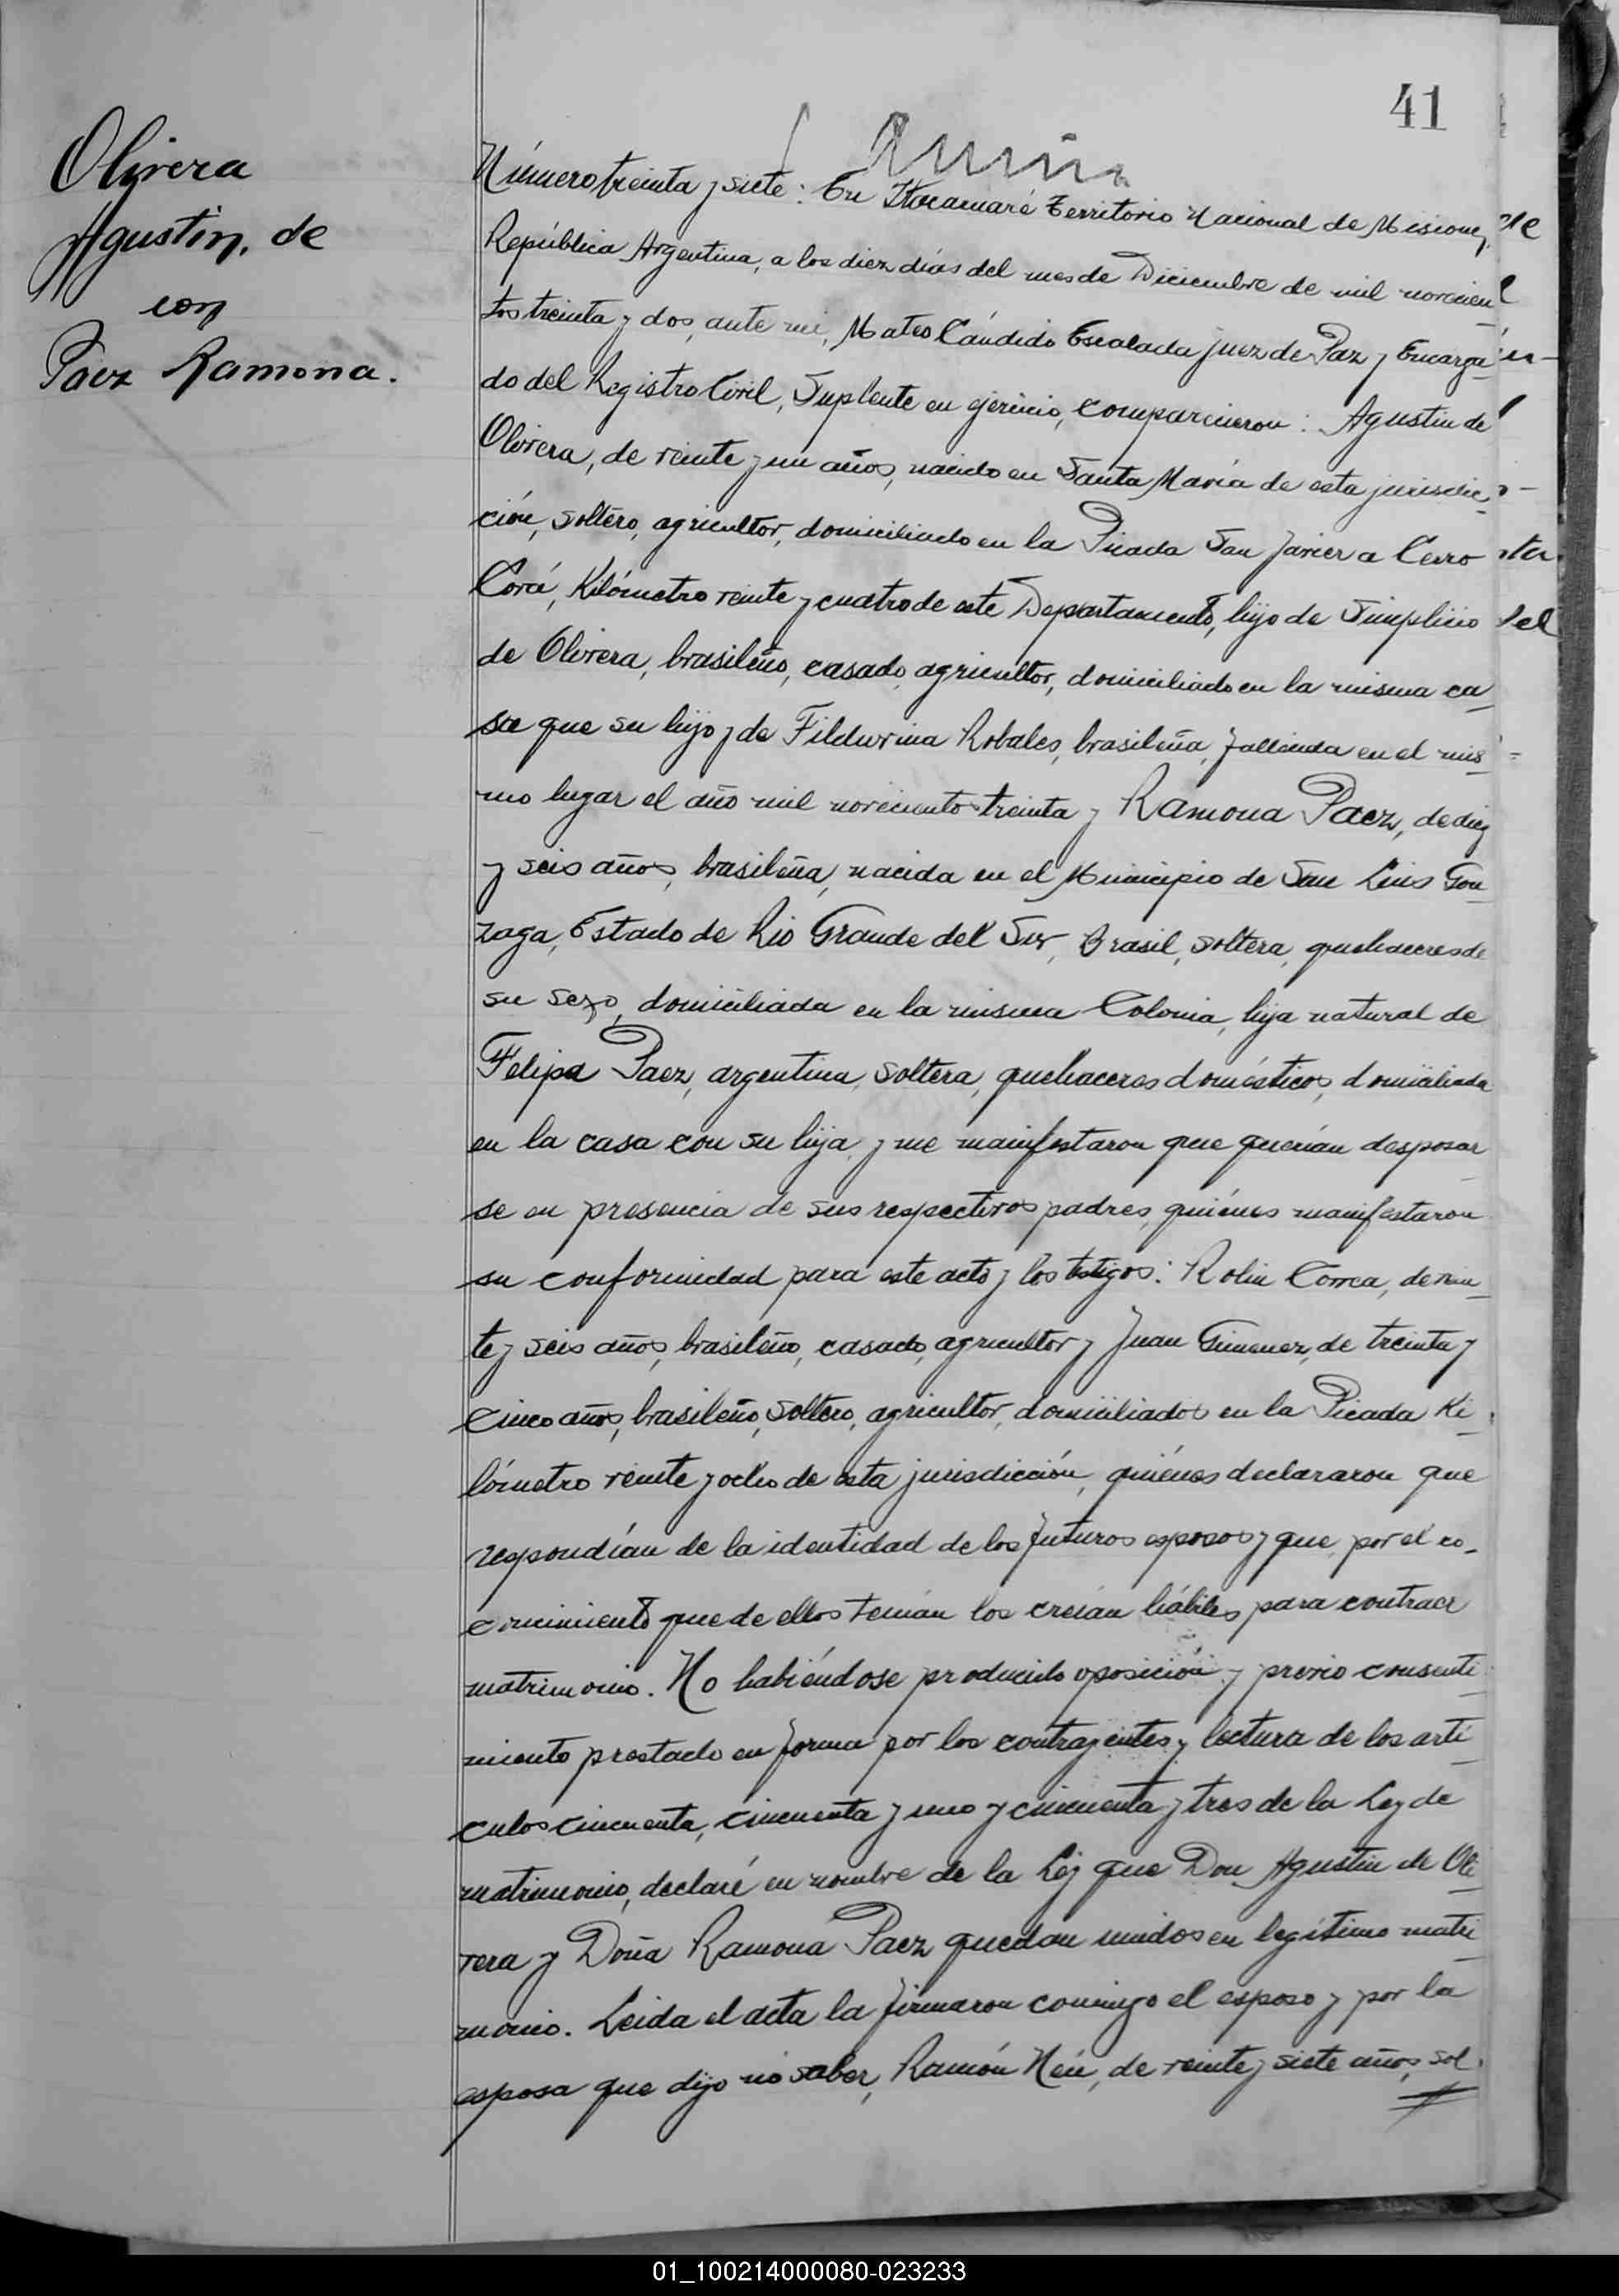 41
Olivera
Agustín, de
con
Paez Ramona.
Número treinta y siete: En Itacaruaré Territorio Nacional de Misiones,
República Argentina, a los diez días del mes de Diciembre de mil novecien
tos treinta y dos, ante mi, Mateo Cándido Escalada Juez de Paz y Encarga
do del Registro Civil, Suplente en ejercicio, comparecieron: Agustin de
Olivera, de veinte y un años, nacido en Santa María de esta jurisdic
ción, soltero, agricultor, domiciliado en la Picada San Javier a Cerro
Corá, Kilómetro veinte y cuatro de este Departamento, hijo de Simplicio
de Olivera, brasileño, casado, agricultor, domiciliado en la misma ca
sa que su hijo y de Robales, brasileña, fallecida en el mis
mo lugar el año mil novecientos treinta y Ramona Paez, de diez
y seis años, brasileña, nacida en el Municipio de San Luis Gon
zaga, Estado de Rio Grande del Sur, Brasil, soltera, quehaceres de
su sexo, domiciliada en la misma Colonia, hija natural de
Felipa Paez, argentina, soltera, quehaceres domésticos, domiciliada
en la casa con su hija, y me manifestaron que querían desposar
se en presencia de sus respectivos padres, quiénes manifestaron
su conformidad para este acto y los testigos: Rolin Correa, de vein
te y seis años, brasileño, casado, agricultor y Juan Gimenez, de treinta y
cinco años, brasileño, soltero, agricultor, domiciliados en la Picada Ki
lómetro veinte y ocho de esta jurisdicción, quiénes declararon que
respondían de la identidad de los futuros esposos y que por el co-
nocimiento que de ellos tenían los creían hábiles para contraer
matrimonio. No habiéndose producido oposición y previo consenti
miento prestado en forma por los contrayentes y lectura de los artí
culos cincuenta, cincuenta y uno y cincuenta y tres de la Ley de
matrimonio, declaré en nombre de la Ley que Don Agustin de Oli
vera y Doña Ramona Paez quedan unidos en legítimo matri
monio. Leida el acta la firmaron conmigo el esposo y por la
esposa que dijo no saber, Ramón de veinte y siete años, sol
01_100214000080-023233